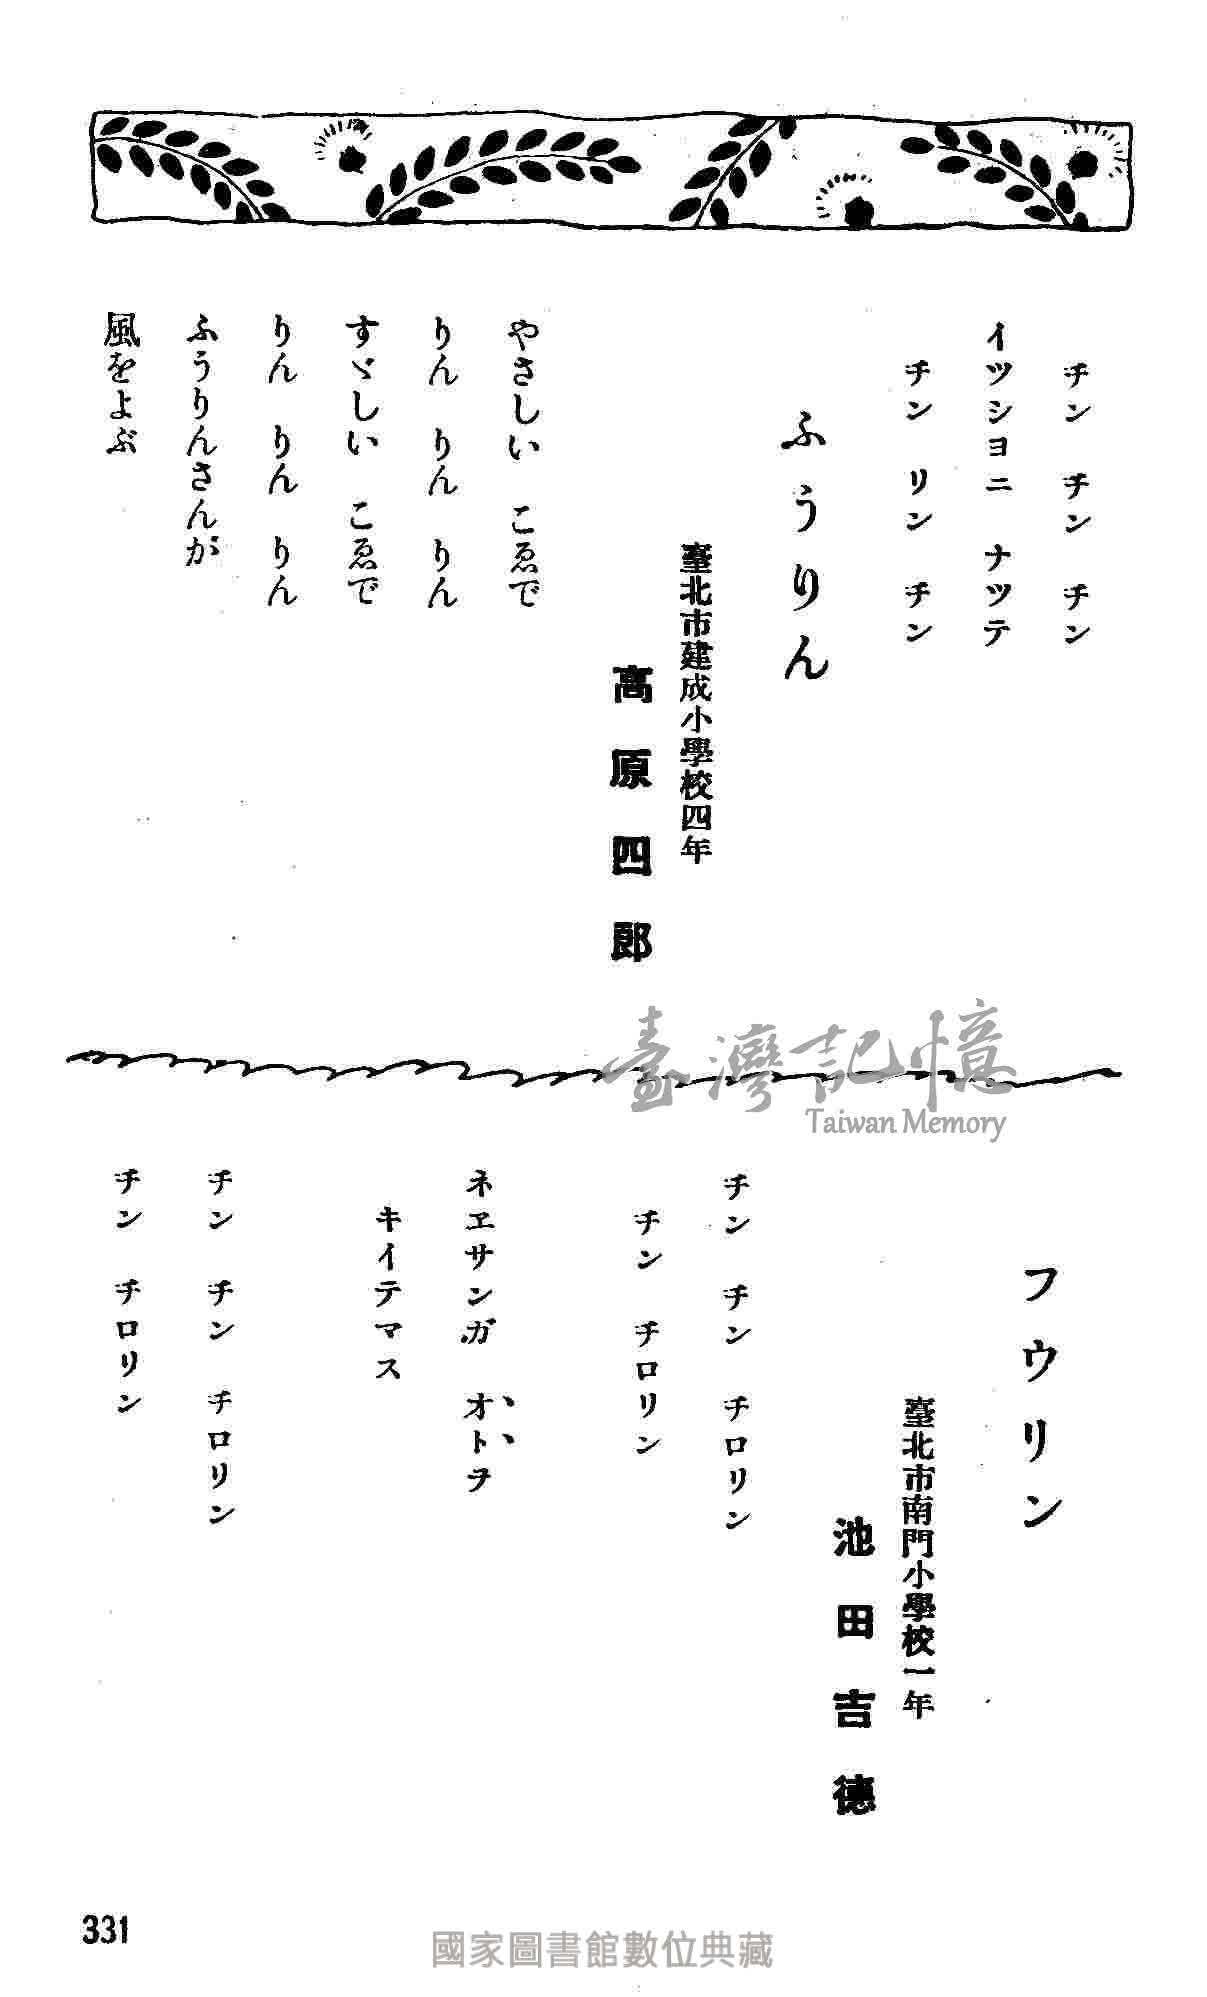 チン チン チン
イツシヨニ ナツテ
チン リン チン
ふうりん
臺北市建成小學校四年
高原四郎
やさしい こゑで
りん りん りん
すゞしい こゑで
りん りん りん
ふうりんさんが
風をよぶ
臺灣記憶
Taiwan Memory
フウリン
臺北市南門小學校一年
池田吉德
チン チン チロリン
チン チロリン
ネヱサンガ オトヲ
キイテマス
チン チン チロリン
チン チロリン
331
國家圖書館數位典藏